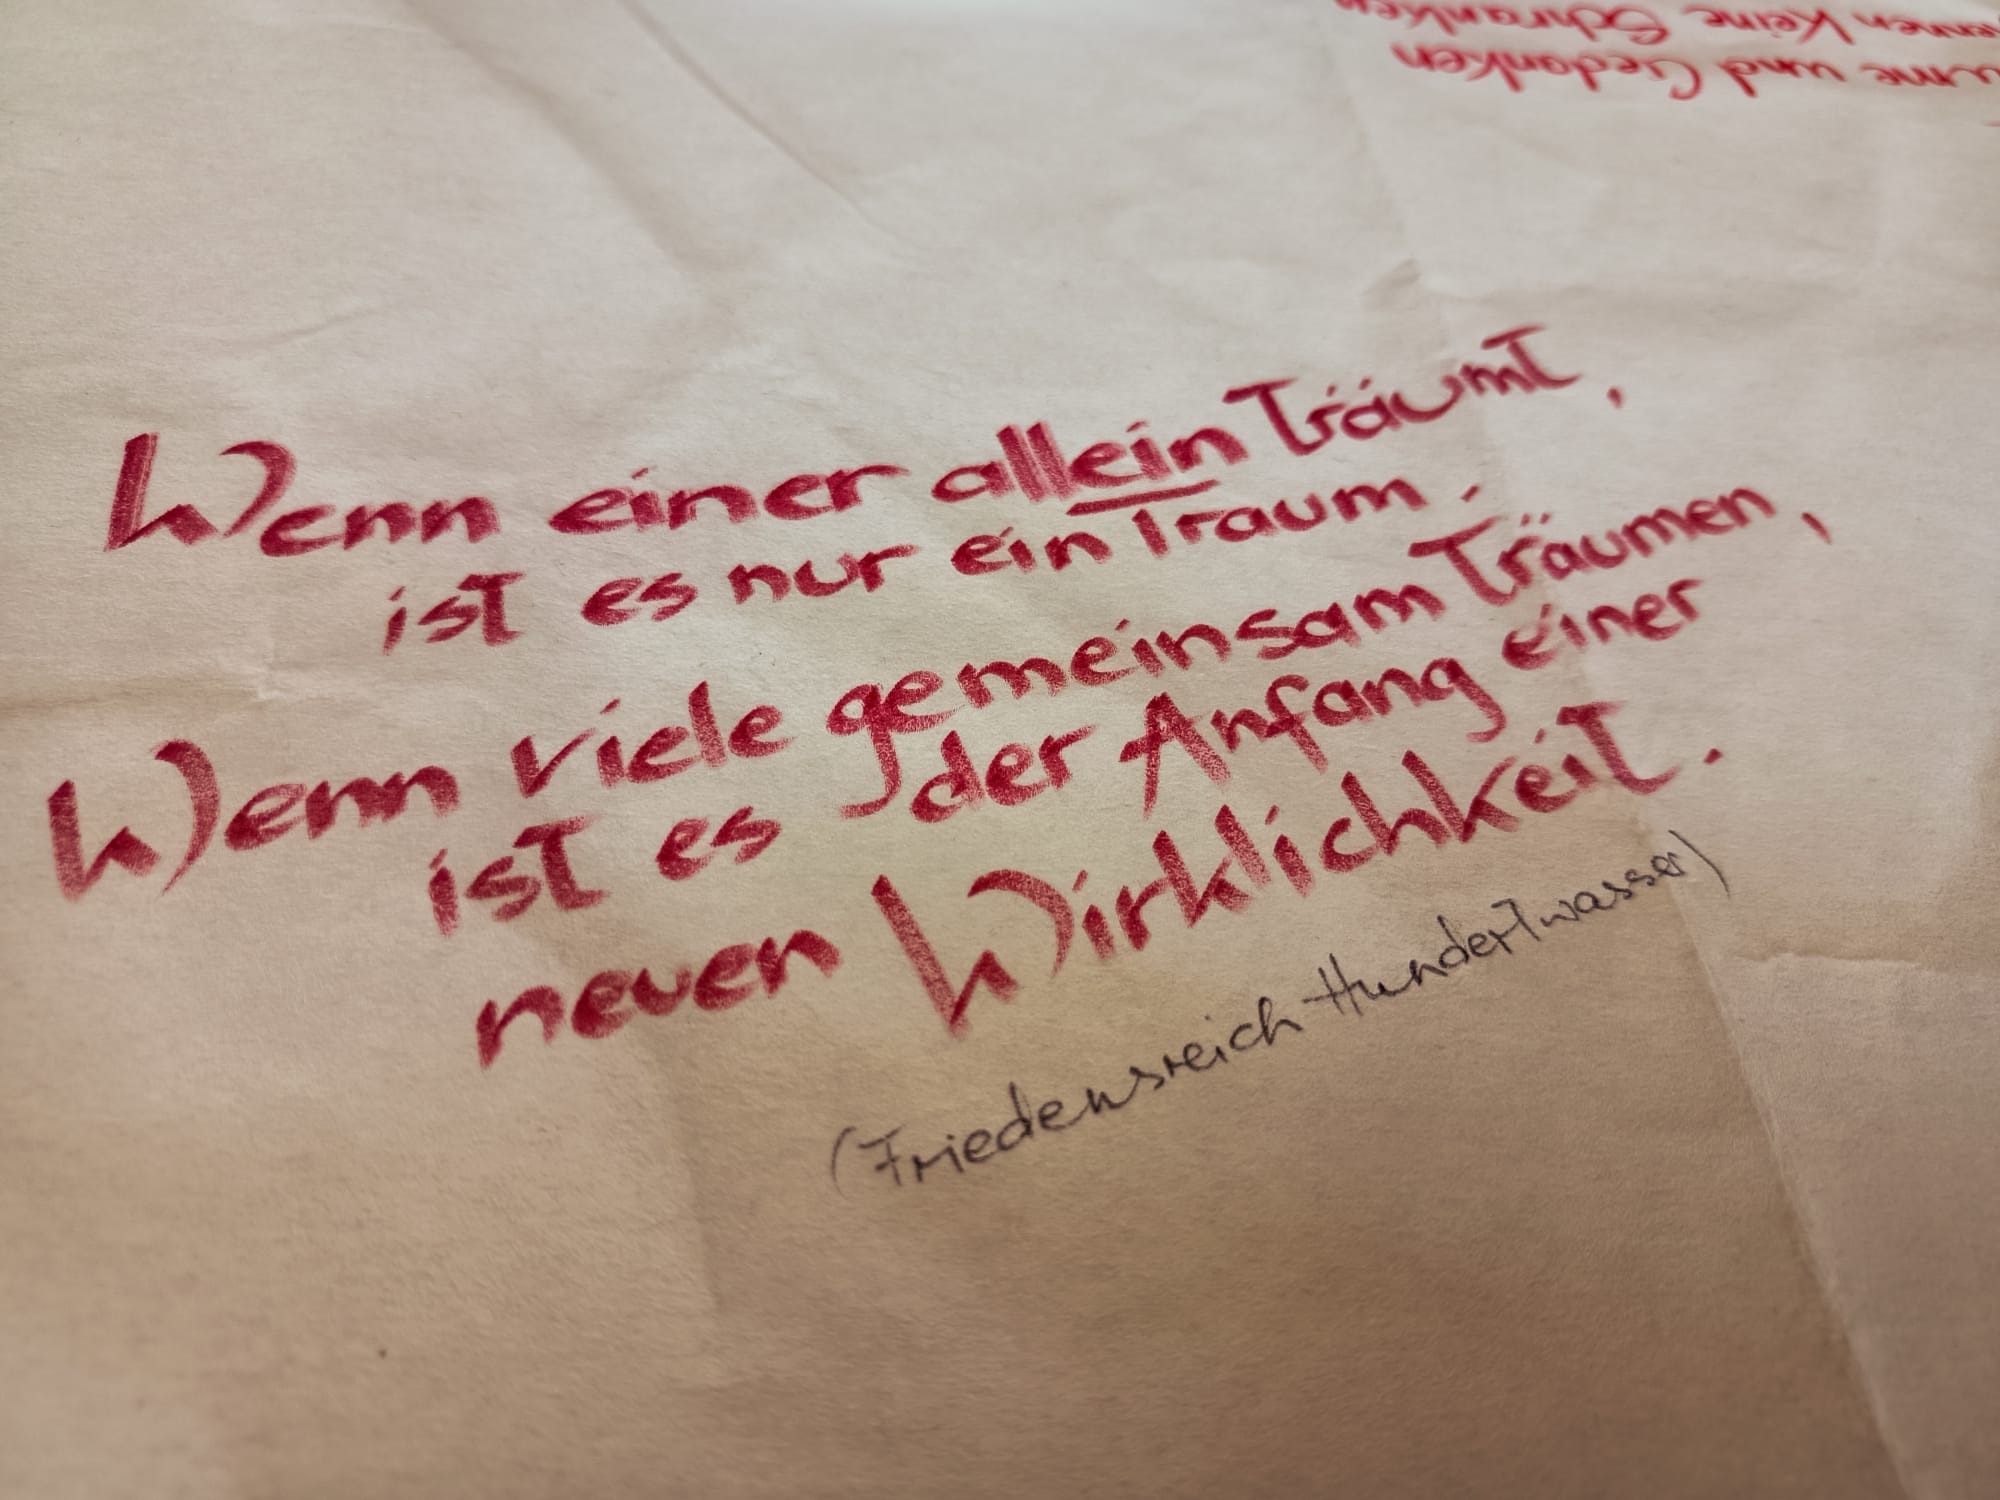 Wenn einer allein träumt,
ist es nur ein Traum.
Wenn viele gemeinsam träumen,
ist es der Anfang einer
neuen Wirklichkeit.
(Friedensreich Hundertwasser)
und Gedanken
keine Schranken